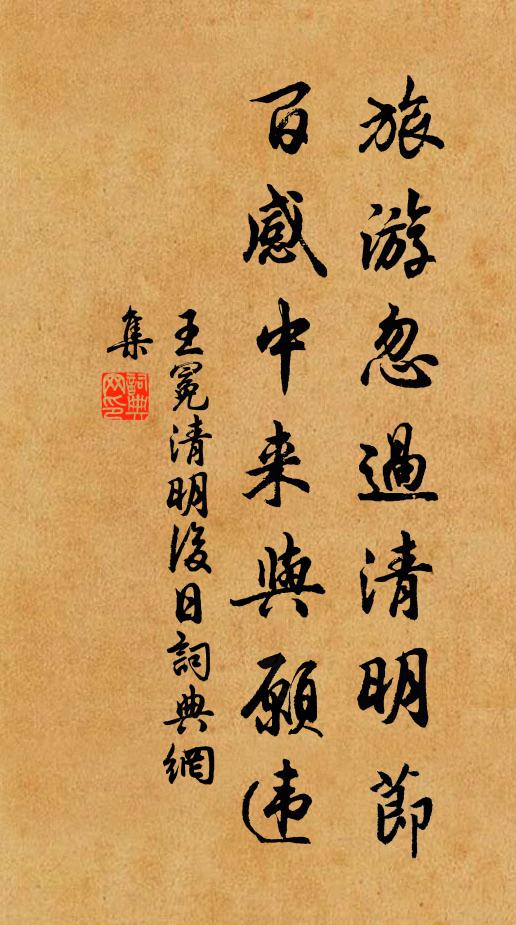 旅游忽過清明節
百感中来與願违
王冕清明後日詞典網
集
詞典
网印